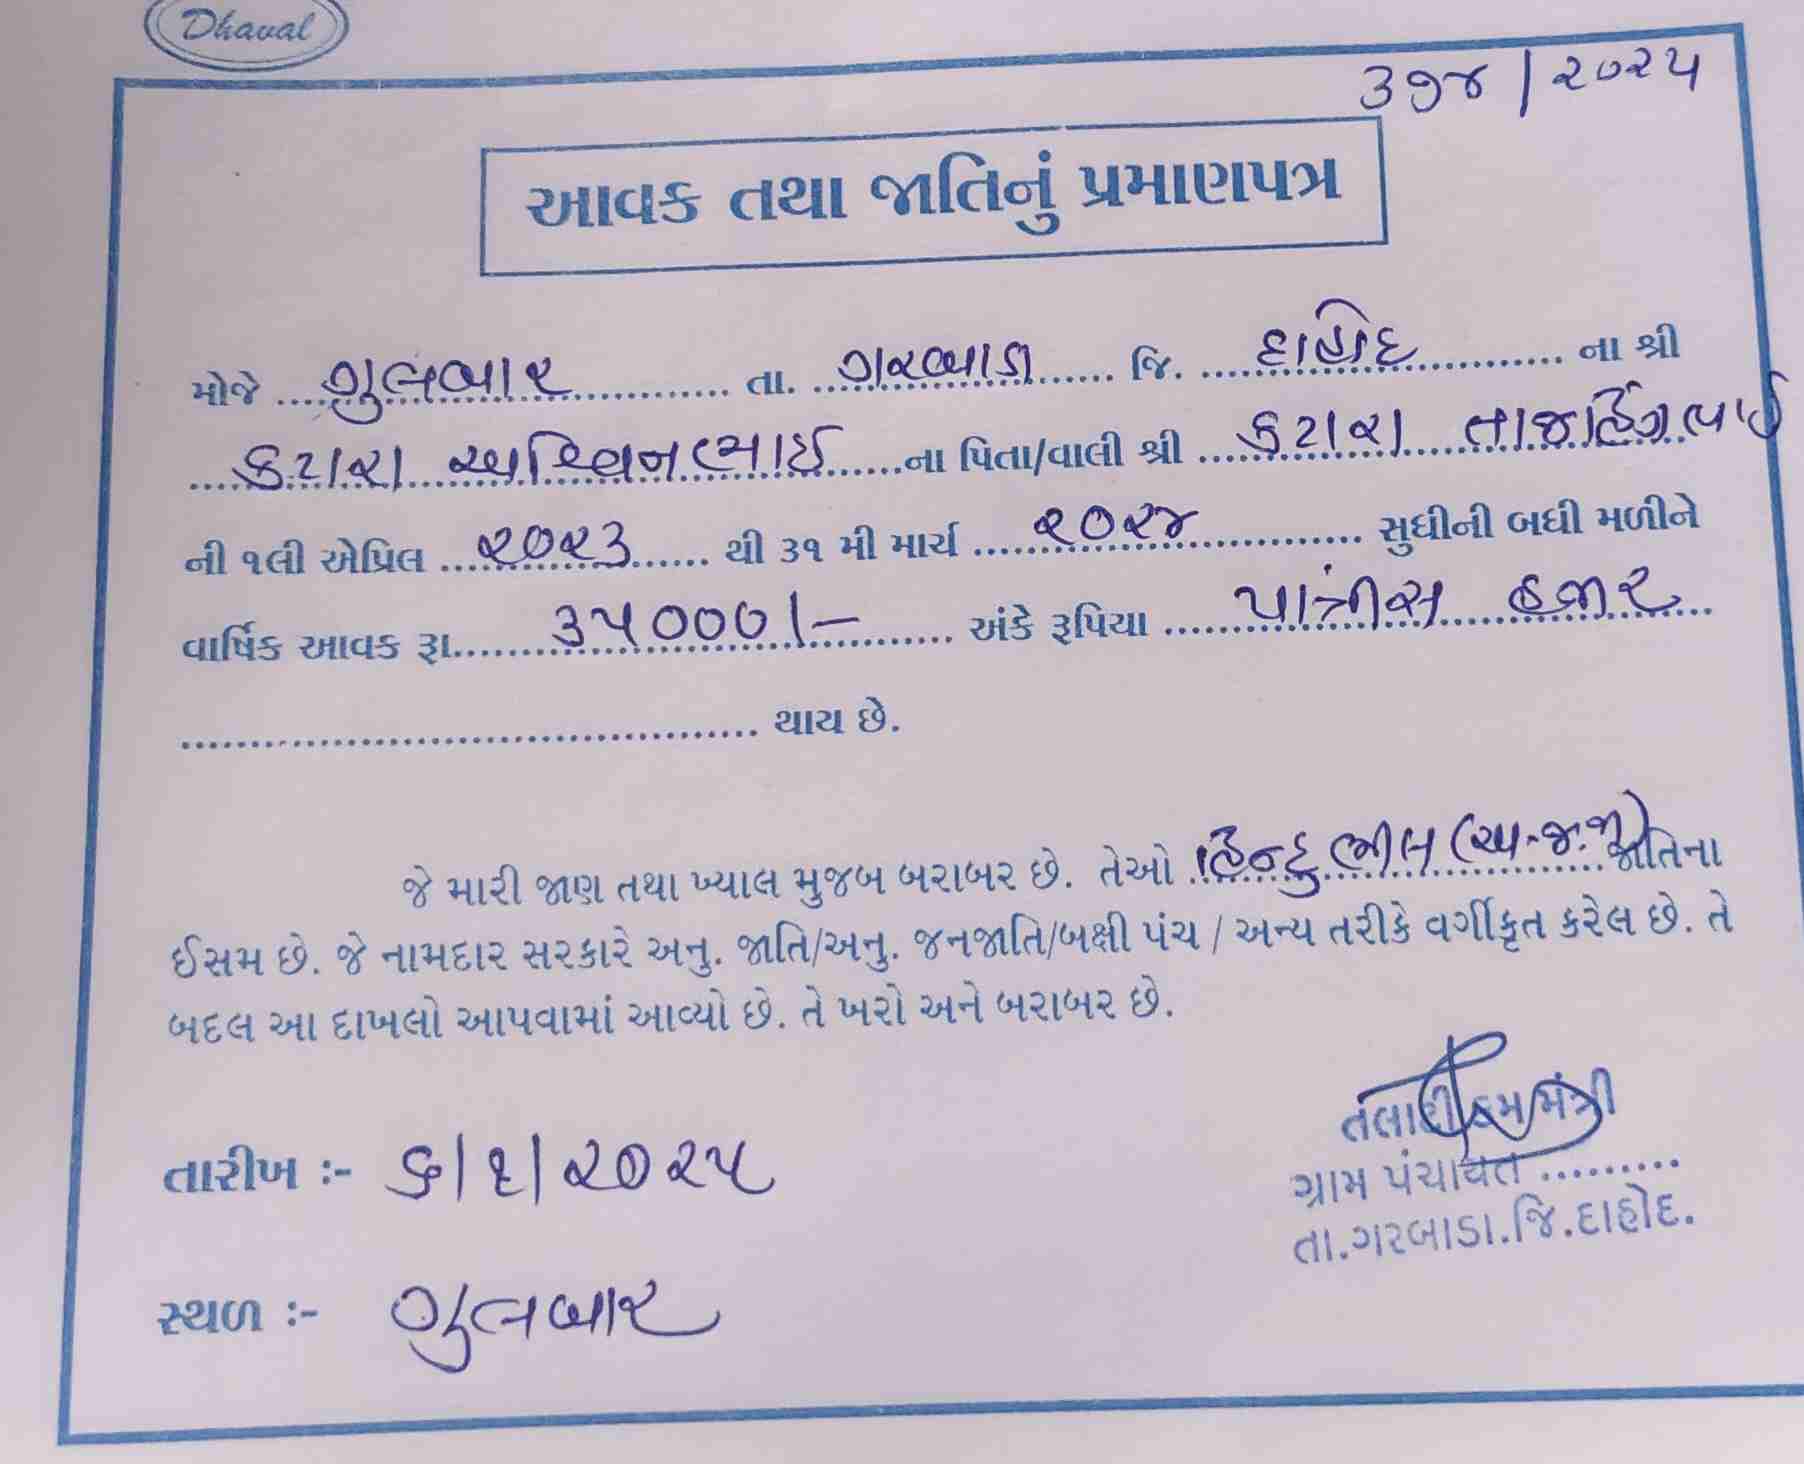 Dhaval
૩૭૪ / ૨૦૨૫
આવક તથા જાતિનું પ્રમાણપત્ર
મોજે ગુલબાર તા. ગરબાડા જિ. દાહોદ ના શ્રી
કટારા અશ્વિનભાઈ ના પિતા/વાલી શ્રી કટારા તાજહિંગભાઈ
ની ૧લી એપ્રિલ ૨૦૨૩ થી ૩૧ મી માર્ચ ૨૦૨૪ સુધીની બધી મળીને
વાર્ષિક આવક રૂા. ૩૫૦૦૦/- અંકે રૂપિયા પાંત્રીસ હજાર
થાય છે.
જે મારી જાણ તથા ખ્યાલ મુજબ બરાબર છે. તેઓ હિન્દુ ભીલ (અ.જ.જા) જાતિના
ઈસમ છે. જે નામદાર સરકારે અનુ. જાતિ/અનુ. જનજાતિ/બક્ષી પંચ / અન્ય તરીકે વર્ગીકૃત કરેલ છે. તે
બદલ આ દાખલો આપવામાં આવ્યો છે. તે ખરો અને બરાબર છે.
તલાટી કમ મંત્રી
તારીખ :- ૬/૧/૨૦૨૫
ગ્રામ પંચાયત .........
તા.ગરબાડા.જિ.દાહોદ.
સ્થળ :- ગુલબાર